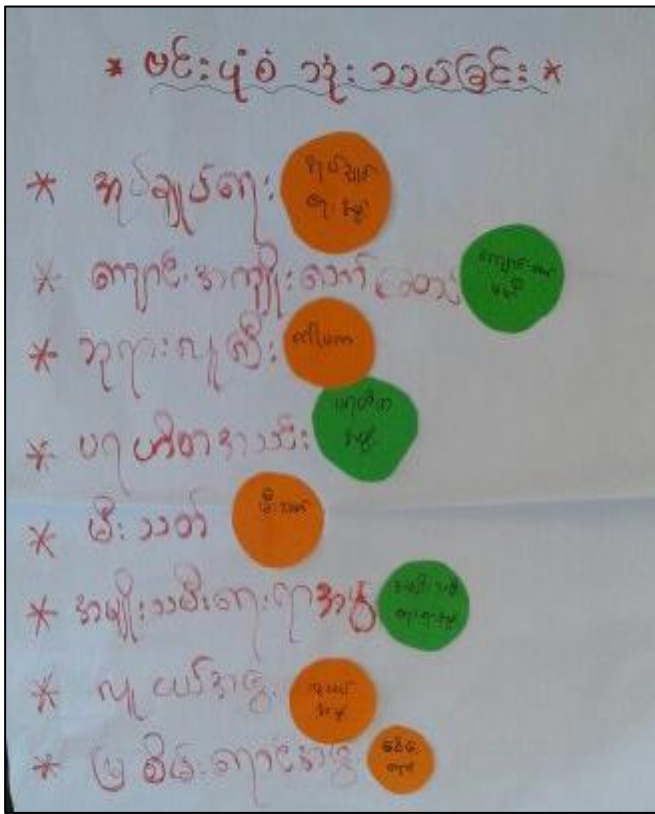 * ဗင်းပုံစံ သုံးသပ်ခြင်း *
* အုပ်ချုပ်ရေး အုပ်ချုပ်ရေးအဖွဲ့
* ကျောင်းအကျိုးတော်ဆောင်
* ဘုရားလူကြီး ဂေါပက
* ပရဟိတအသင်း ပရဟိတအဖွဲ့
* မီးသတ် မီးသတ်
* အမျိုးသမီးရေးရာအဖွဲ့ အမျိုးသမီးရေးရာအဖွဲ့
* လူငယ်အဖွဲ့ လူငယ်အဖွဲ့
* မြစိမ်းရောင်အဖွဲ့